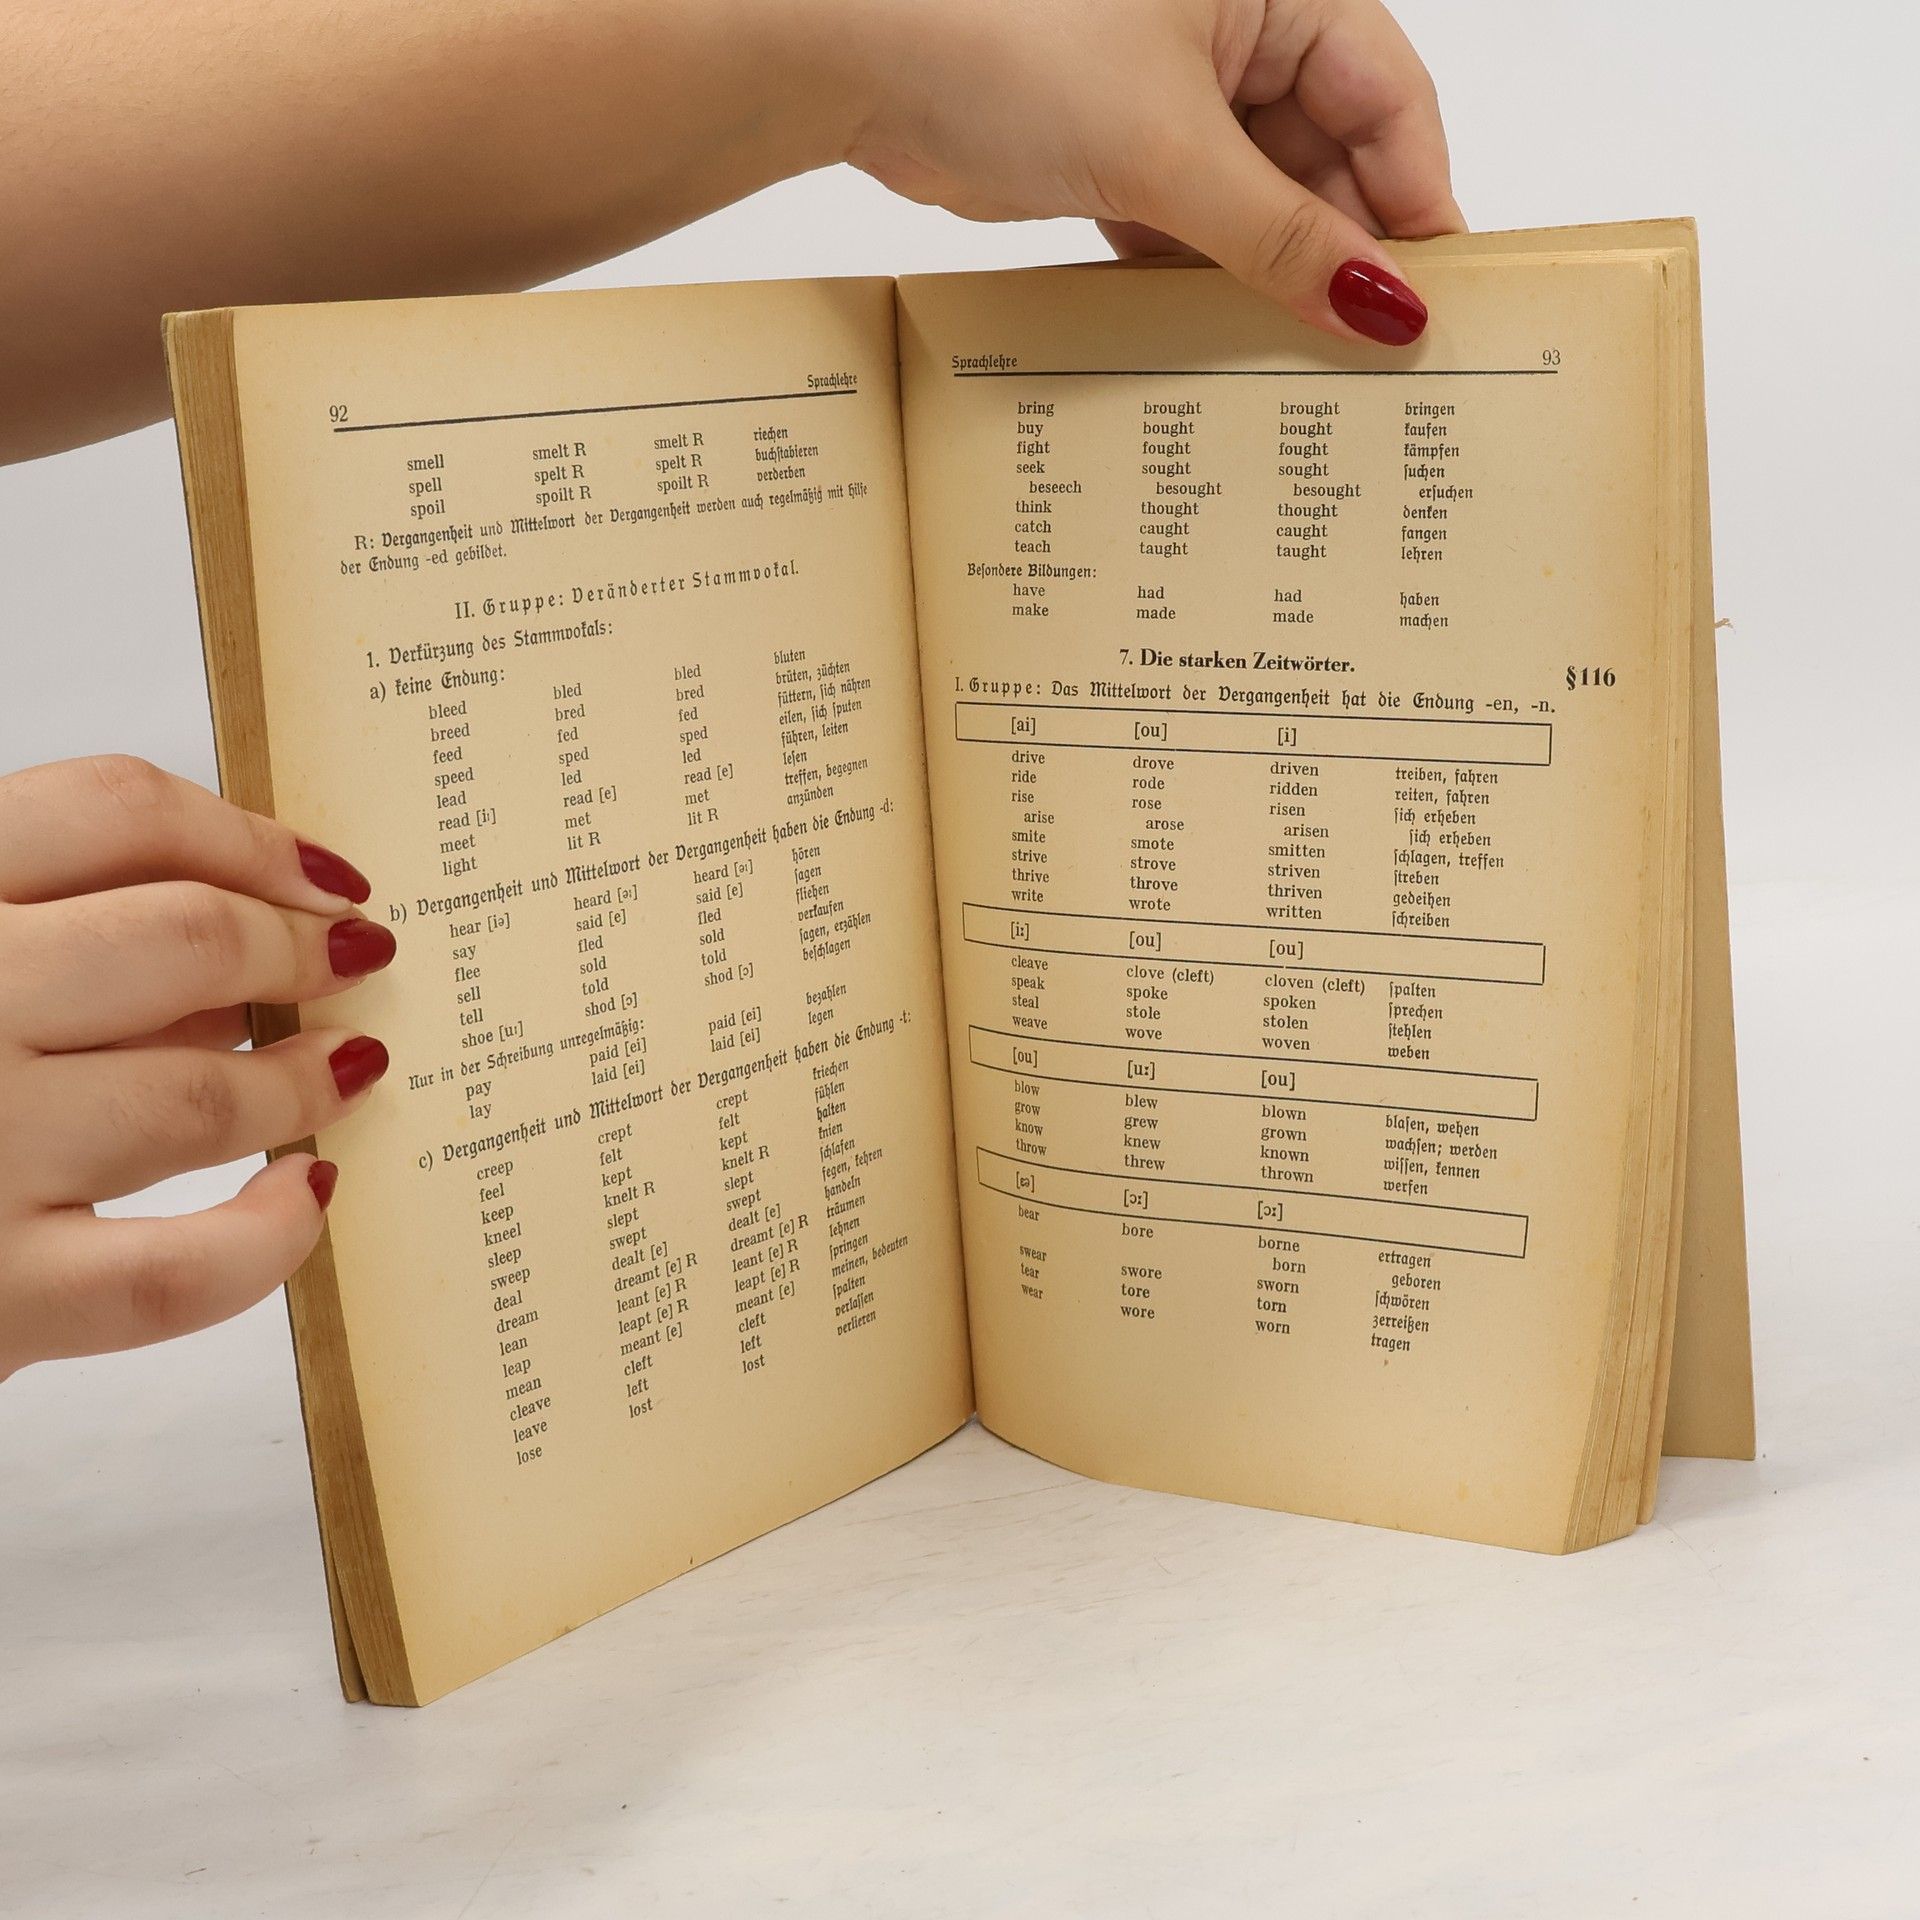 92 Sprachlehre
smell smelt R smelt R riechen
spell spelt R spelt R buchſtabieren
spoil spoilt R spoilt R verderben
R: Vergangenheit und Mittelwort der Vergangenheit werden auch regelmäßig mit Hilfe
der Endung -ed gebildet.
II. Gruppe: Veränderter Stammvokal.
1. Verkürzung des Stammvokals:
a) keine Endung:
bleed bled bled bluten
breed bred bred brüten, züchten
feed fed fed füttern, ſich nähren
speed sped sped eilen, ſich ſputen
lead led led führen, leiten
read [iː] read [e] read [e] leſen
meet met met treffen, begegnen
light lit R lit R anzünden
b) Vergangenheit und Mittelwort der Vergangenheit haben die Endung -d:
hear [iə] heard [əː] heard [əː] hören
say said [e] said [e] ſagen
flee fled fled fliehen
sell sold sold verkaufen
tell told told ſagen, erzählen
shoe [uː] shod [ɔ] shod [ɔ] beſchlagen
Nur in der Schreibung unregelmäßig:
pay paid [ei] paid [ei] bezahlen
lay laid [ei] laid [ei] legen
c) Vergangenheit und Mittelwort der Vergangenheit haben die Endung -t:
creep crept crept kriechen
feel felt felt fühlen
keep kept kept halten
kneel knelt R knelt R knien
sleep slept slept ſchlafen
sweep swept swept fegen, kehren
deal dealt [e] dealt [e] handeln
dream dreamt [e] R dreamt [e] R träumen
lean leant [e] R leant [e] R lehnen
leap leapt [e] R leapt [e] R ſpringen
mean meant [e] meant [e] meinen, bedeuten
cleave cleft cleft ſpalten
leave left left verlaſſen
lose lost lost verlieren
Sprachlehre 93
bring brought brought bringen
buy bought bought kaufen
fight fought fought kämpfen
seek sought sought ſuchen
beseech besought besought erſuchen
think thought thought denken
catch caught caught fangen
teach taught taught lehren
Beſondere Bildungen:
have had had haben
make made made machen
7. Die starken Zeitwörter. §116
I. Gruppe: Das Mittelwort der Vergangenheit hat die Endung -en, -n.
[ai] [ou] [i]
drive drove driven treiben, fahren
ride rode ridden reiten, fahren
rise rose risen ſich erheben
arise arose arisen ſich erheben
smite smote smitten ſchlagen, treffen
strive strove striven ſtreben
thrive throve thriven gedeihen
write wrote written ſchreiben
[iː] [ou] [ou]
cleave clove (cleft) cloven (cleft) ſpalten
speak spoke spoken ſprechen
steal stole stolen ſtehlen
weave wove woven weben
[ou] [uː] [ou]
blow blew blown blaſen, wehen
grow grew grown wachſen; werden
know knew known wiſſen, kennen
throw threw thrown werfen
[ɛə] [ɔː] [ɔː]
bear bore borne ertragen
born geboren
swear swore sworn ſchwören
tear tore torn zerreißen
wear wore worn tragen